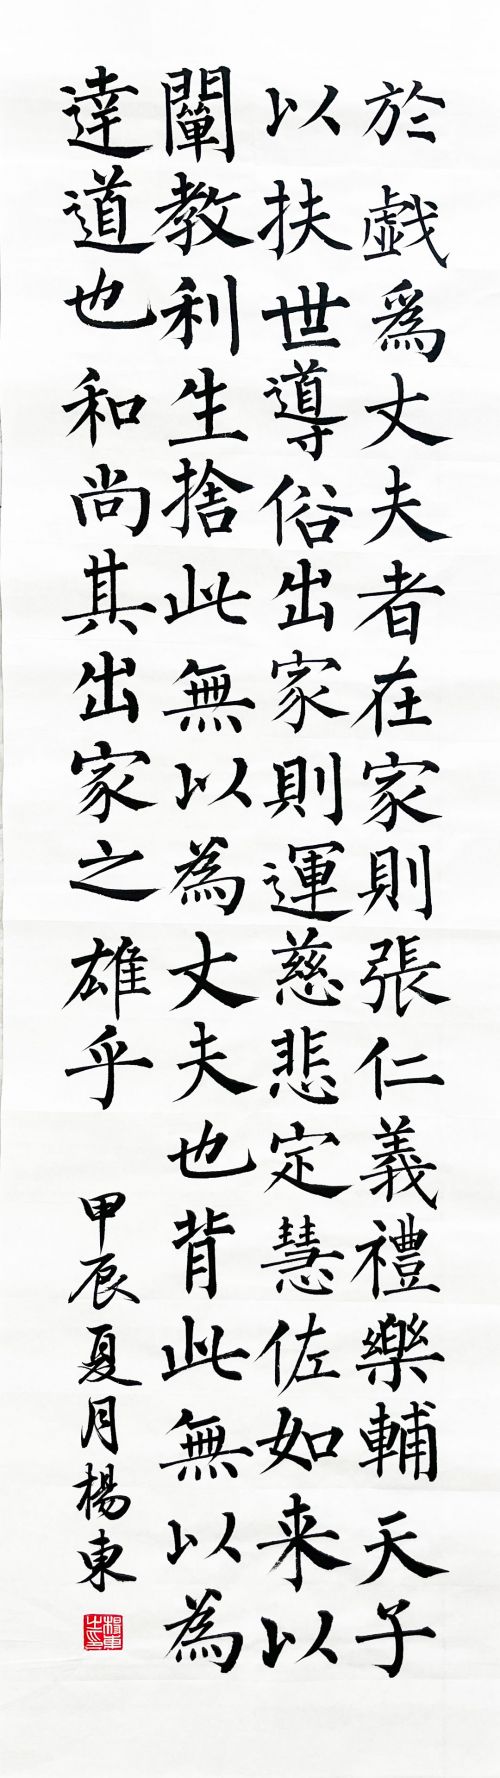 於戱爲丈夫者在家則張仁義禮樂輔天子
以扶世導俗出家則運慈悲定慧佐如来以
闡教利生捨此無以為丈夫也背此無以為
達道也和尚其出家之雄乎
甲辰夏月楊東
楊東之印